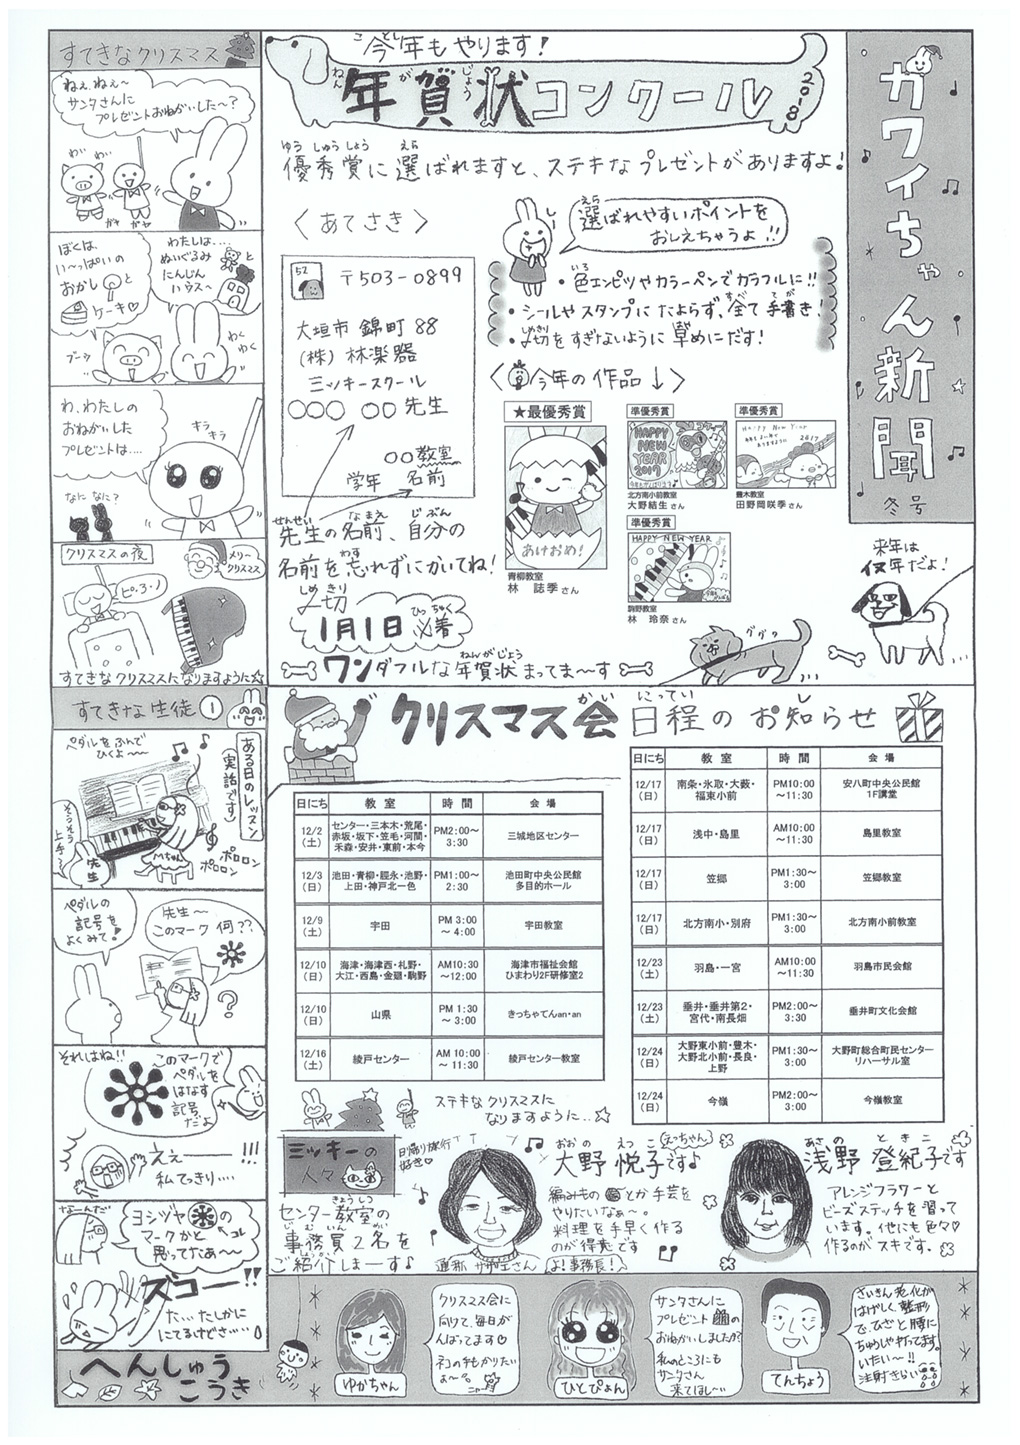 カワイちゃん新聞
冬号
今年もやります!
こ とし
年賀状コンクール
ねん が じょう
2018
ゆうしゅうしょう えら
優秀賞に選ばれますと、ステキなプレゼントがありますよ!
〈あてさき〉
52
〒503-0899
大垣市 錦町 88
(株) 林楽器
ミッキースクール
○○○ ○○先生
○○教室
学年 名前
せんせい なまえ じぶん
先生の名前、自分の
わす
名前を忘れずにかいてね!
しめきり
〆切
1月1日 必着
ひっちゃく
ねんがじょう
ワンダフルな年賀状まってま〜す
えら
選ばれやすいポイントを
おしえちゃうよ!!
いろ
・色エンピツやカラーペンでカラフルに!!
すべ てが
・シールやスタンプにたよらず、全て手書き!
しめきり
・〆切をすぎないように早めにだす!
〈今年の作品↓〉
★最優秀賞
あけおめ!
青柳教室
林 誌季さん
準優秀賞
HAPPY
NEW
YEAR
2017
北方南小前教室
大野結生さん
準優秀賞
Happy New Year
2017
豊木教室
田野岡咲季さん
準優秀賞
HAPPY NEW YEAR
駒野教室
林 玲奈さん
来年は
戌年だよ!
ググク
すてきなクリスマス
ねぇ、ねぇ〜
サンタさんに
プレゼントおねがいした〜?
わい わい
ガヤ ガヤ
ぼくは、
い〜っぱいの
おかし
と
ケーキ♡
わたしは....
ぬいぐるみと
にんじん
ハウス〜
ブーッ
わくわく
わ、わたしの
おねがいした
プレゼントは....
キラキラ
なに なに?
クリスマスの夜
メリー
クリスマス
すてきなクリスマスになりますように☆
すてきな生徒①
ある日のレッスン
(実話です)
ペダルをふんで
ひくよ〜〜
そうそう
上手〜
先生
Mちゃん
ポロロン
ポロロン
ペダルの
記号を
よくみて!
先生〜
このマーク 何??
?
それはね!!
このマークで
ペダルを
はなす
記号
だよ
えぇー!!!
私てっきり....
なーんだ
ヨシヅヤの
マークかと
思ってたぁ〜
コレ
ズコー!!
た...たしかに
にてるけどさ....
クリスマス会 日程のお知らせ
かい にってい し
日にち 教室 時間 会場
12/2(土) センター・三本木・荒尾・赤坂・坂下・笠毛・河間・禾森・安井・東前・本今 PM2:00〜3:30 三城地区センター
12/3(日) 池田・青柳・脛永・池野・上田・神戸北一色 PM1:00〜2:30 池田町中央公民館多目的ホール
12/9(土) 宇田 PM 3:00〜4:00 宇田教室
12/10(日) 海津・海津西・札野・大江・西島・金廻・駒野 AM10:30〜12:00 海津市福祉会館ひまわり2F研修室2
12/10(日) 山県 PM 1:30〜3:00 きっちゃてんan・an
12/16(土) 綾戸センター AM 10:00〜11:30 綾戸センター教室
日にち 教室 時間 会場
12/17(日) 南条・氷取・大薮・福東小前 PM10:00〜11:30 安八町中央公民館1F講堂
12/17(日) 浅中・島里 AM10:00〜11:30 島里教室
12/17(日) 笠郷 PM1:30〜3:00 笠郷教室
12/17(日) 北方南小・別府 PM1:30〜3:00 北方南小前教室
12/23(土) 羽島・一宮 AM10:00〜11:30 羽島市民会館
12/23(土) 垂井・垂井第2・宮代・南長畑 PM2:00〜3:30 垂井町文化会館
12/24(日) 大野東小前・豊木・大野北小前・長良・上野 PM1:30〜3:00 大野町総合町民センターリハーサル室
12/24(日) 今嶺 PM2:00〜3:00 今嶺教室
ステキなクリスマスに
なりますように...☆
ミッキーの
人々
きょうしつ
センター教室の
じむいん
事務員2名を
ご紹介しまーす♪
日帰り旅行
好き♡
通称 サザエさん
おおの えつこ
大野 悦子です♪
えっちゃん
編みものとか手芸を
やりたいなぁ〜。
料理を手早く作る
のが得意です
よ!事務長!
あさの ときこ
浅野 登紀子です
アレンジフラワーと
ビーズステッチを習って
います。他にも色々♡
作るのがスキです。
へんしゅう
こうき
ゆかちゃん
クリスマス会に
向けて、毎日が
んばってます♡
ネコの手もかりたい
よ〜。
ひとぴょん
サンタさんに
プレゼント
おねがいしましたか?
私のところにも
サンタさん
来てほしい〜
てんちょう
さいきん老化が
はげしく整形
で、ひざと腰に
ちゅうしゃ打ってます。
いたい〜!!
注射きらい